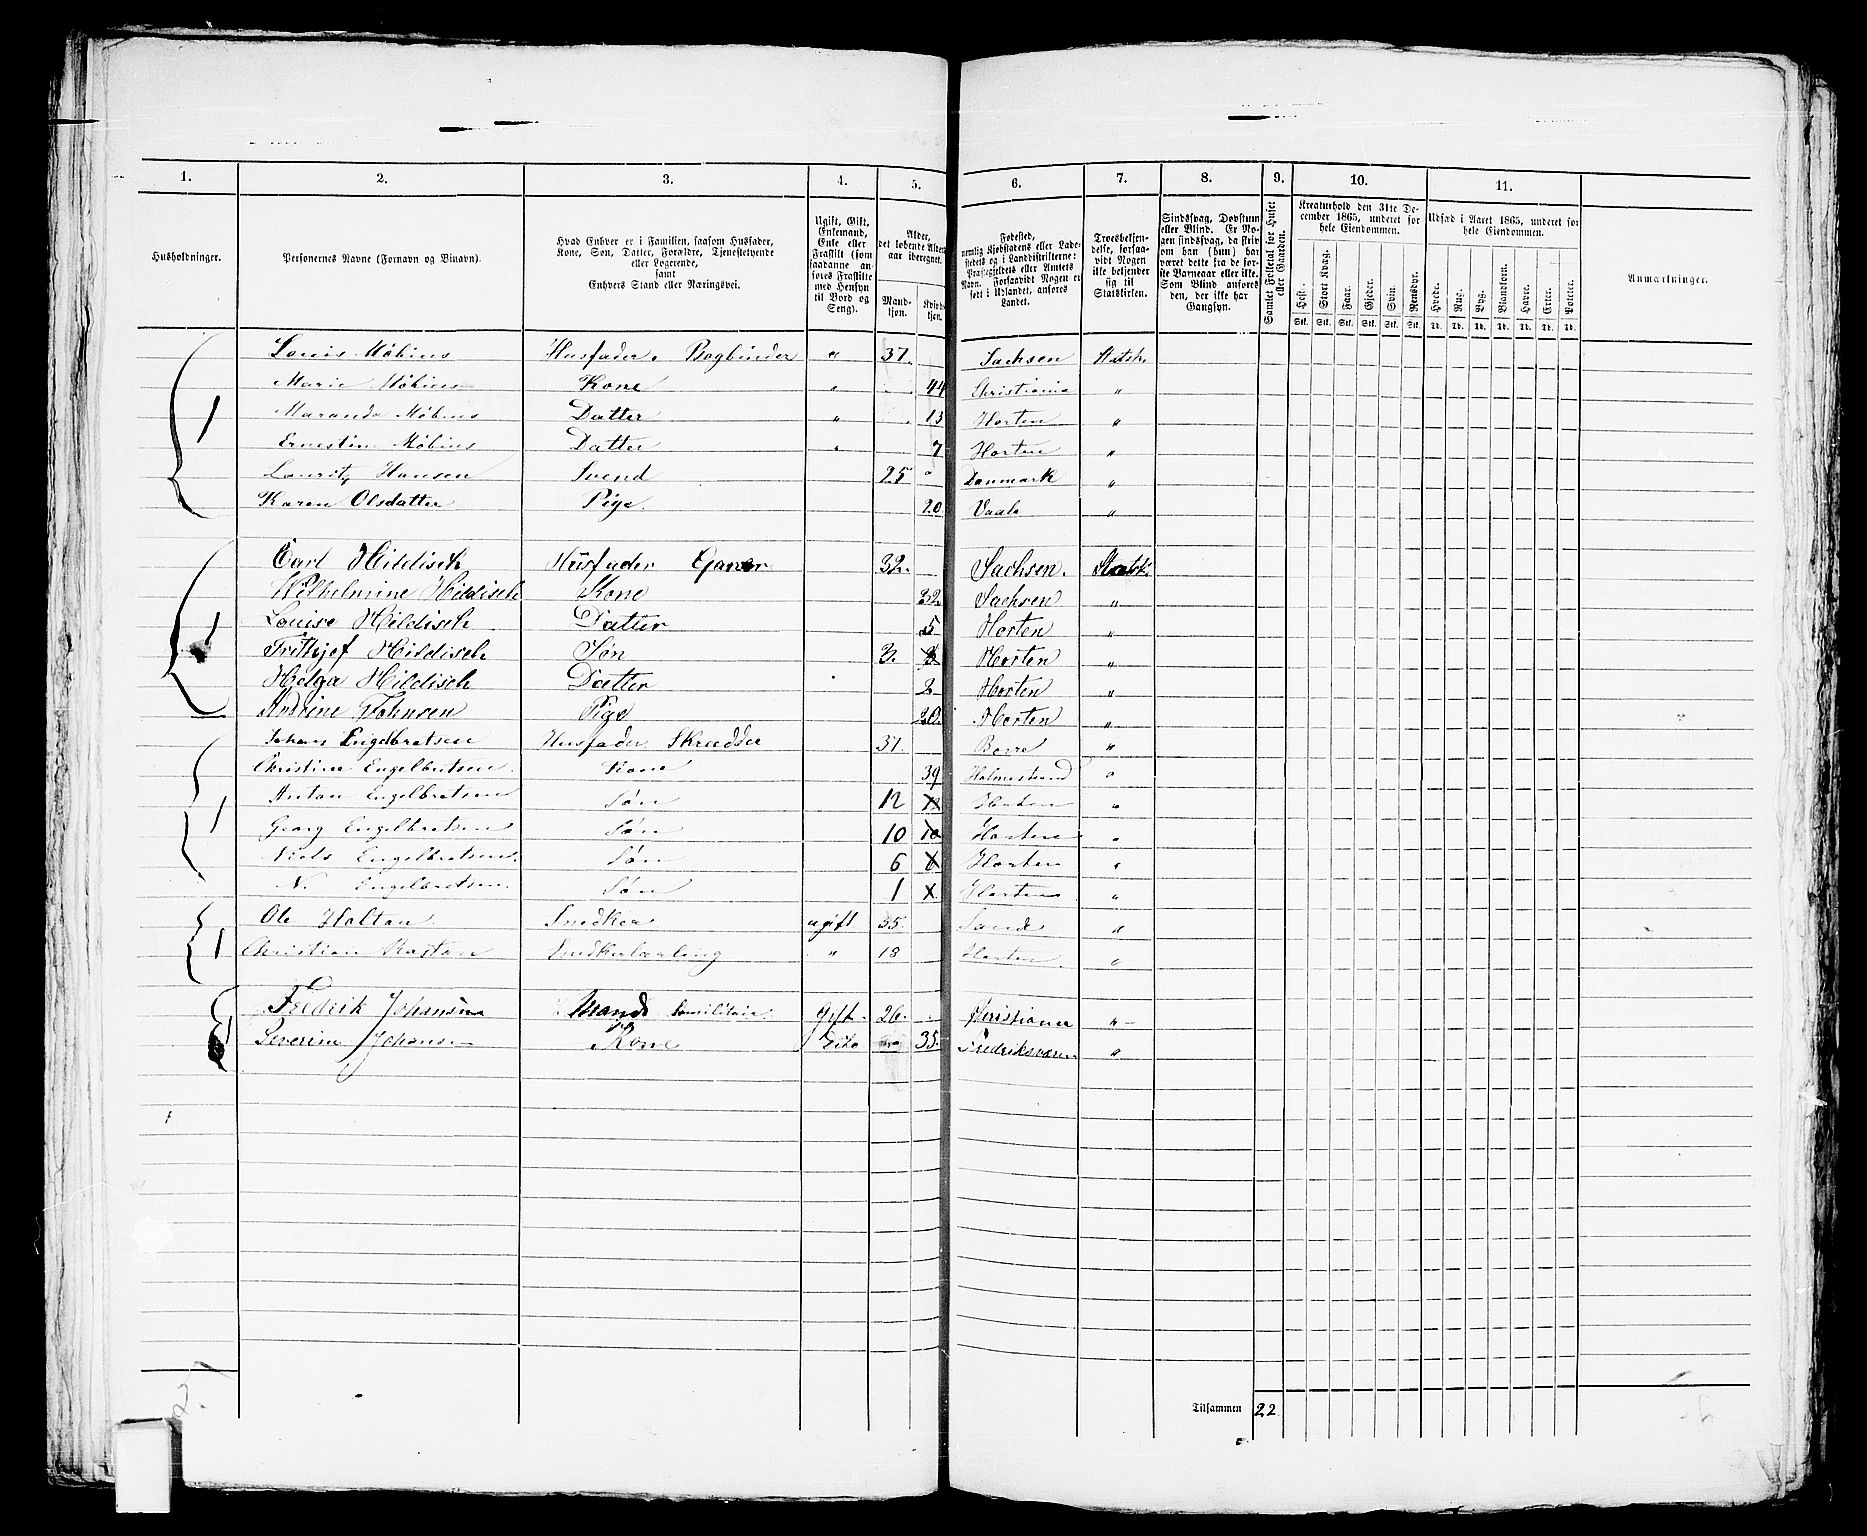 1. 2. 3. 4. 5. 6. 7. 8. 9. 10. 11.
Husholdninger.
Personernes Navne (Fornavn og Binavn).
Hvad Enhver er i Familien, saasom Husfader,
Kone, Søn, Datter, Forældre, Tjenestetyende
eller Logerende,
samt
Enhvers Stand eller Næringsvei.
Ugift, Gift,
Enkemand,
Enke eller
Fraskilt (som
saadanne an-
føres Fraskilte
med Hensyn
til Bord og
Seng).
Alder,
det løbende Alders-
aar iberegnet.
Mand-
kjøn.
Kvinde-
kjøn.
Fødested,
nemlig Kjøbstadens eller Lade-
stedets og i Landdistrikterne:
Præstegjeldets eller Amtets
Navn. Forsaavidt Nogen er
født i Udlandet, anføres
Landet.
Troesbekjen-
delse, forsaa-
vidt Nogen
ikke bekjender
sig til
Statskirken.
Sindssvag, Døvstum
eller Blind. Er No-
gen sindssvag, da skriv
om han (hun) har
været dette fra de før-
ste Barneaar eller ikke.
Som Blind anføres
den, der ikke har
Gangsyn.
Samlet Folketal for Huset
eller Gaarden.
Kreaturhold den 31te De-
cember 1865, underet for
hele Eiendommen.
Hest. Stort Kvæg. Faar. Gjeder. Svin. Rensdyr.
Stk. Stk. Stk. Stk. Stk. Stk.
Udsæd i Aaret 1865, underet for
hele Eiendommen.
Hvede. Rug. Byg. Blandkorn. Havre. Erter. Poteter.
Td. Td. Td. Td. Td. Td. Td.
Anmærkninger.
Louis Møbius Husfader. Bogbinder " 37. Sachsen Statsk.
1 Marie Møbius Kone " 44 Christiania "
Maranda Møbius Datter " 13 Horten "
Ernestine Møbius Datter " 7 Horten "
Lauritz Hansen Svend 25 " Danmark "
Karen Olsdatter Pige. 20 Vaale "
Carl Hildisch Husfader Garver 32. Sachsen. Statsk.
Wilhelmine Hildisch Kone 32. Sachsen "
1 Louise Hildisch Datter 5 Horten "
Frithjof Hildisch Søn 3. 3 Horten "
Helga Hildisch Datter 2 Horten "
Andrine Johnsen Pige 20. Horten "
Johan Engelbretsen Husfader Skrædder 37. Borre "
Christine Engelbretsen. Kone 39 Holmestrand "
1 Anton Engelbretsen Søn 12 Horten "
Georg Engelbretsen Søn 10 10 Horten "
Niels Engelbretsen. Søn 6 6 Horten "
N. Engelbretsen. Søn 1 Horten "
Ole Holtan Snedker ugift 35. Sande "
1 Christian Snedkerlærling " 18 Horten "
Fredrik Johansen Mand Gift 26. Christiania "
1 Severine Johansen Kone Dito 35. Fredriksværn "
Tilsammen 22
2.